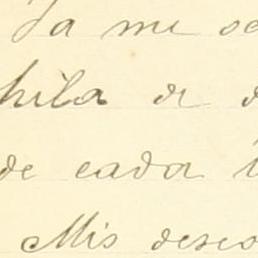 Ja me se
hila de d
de cada l
Mis deseo